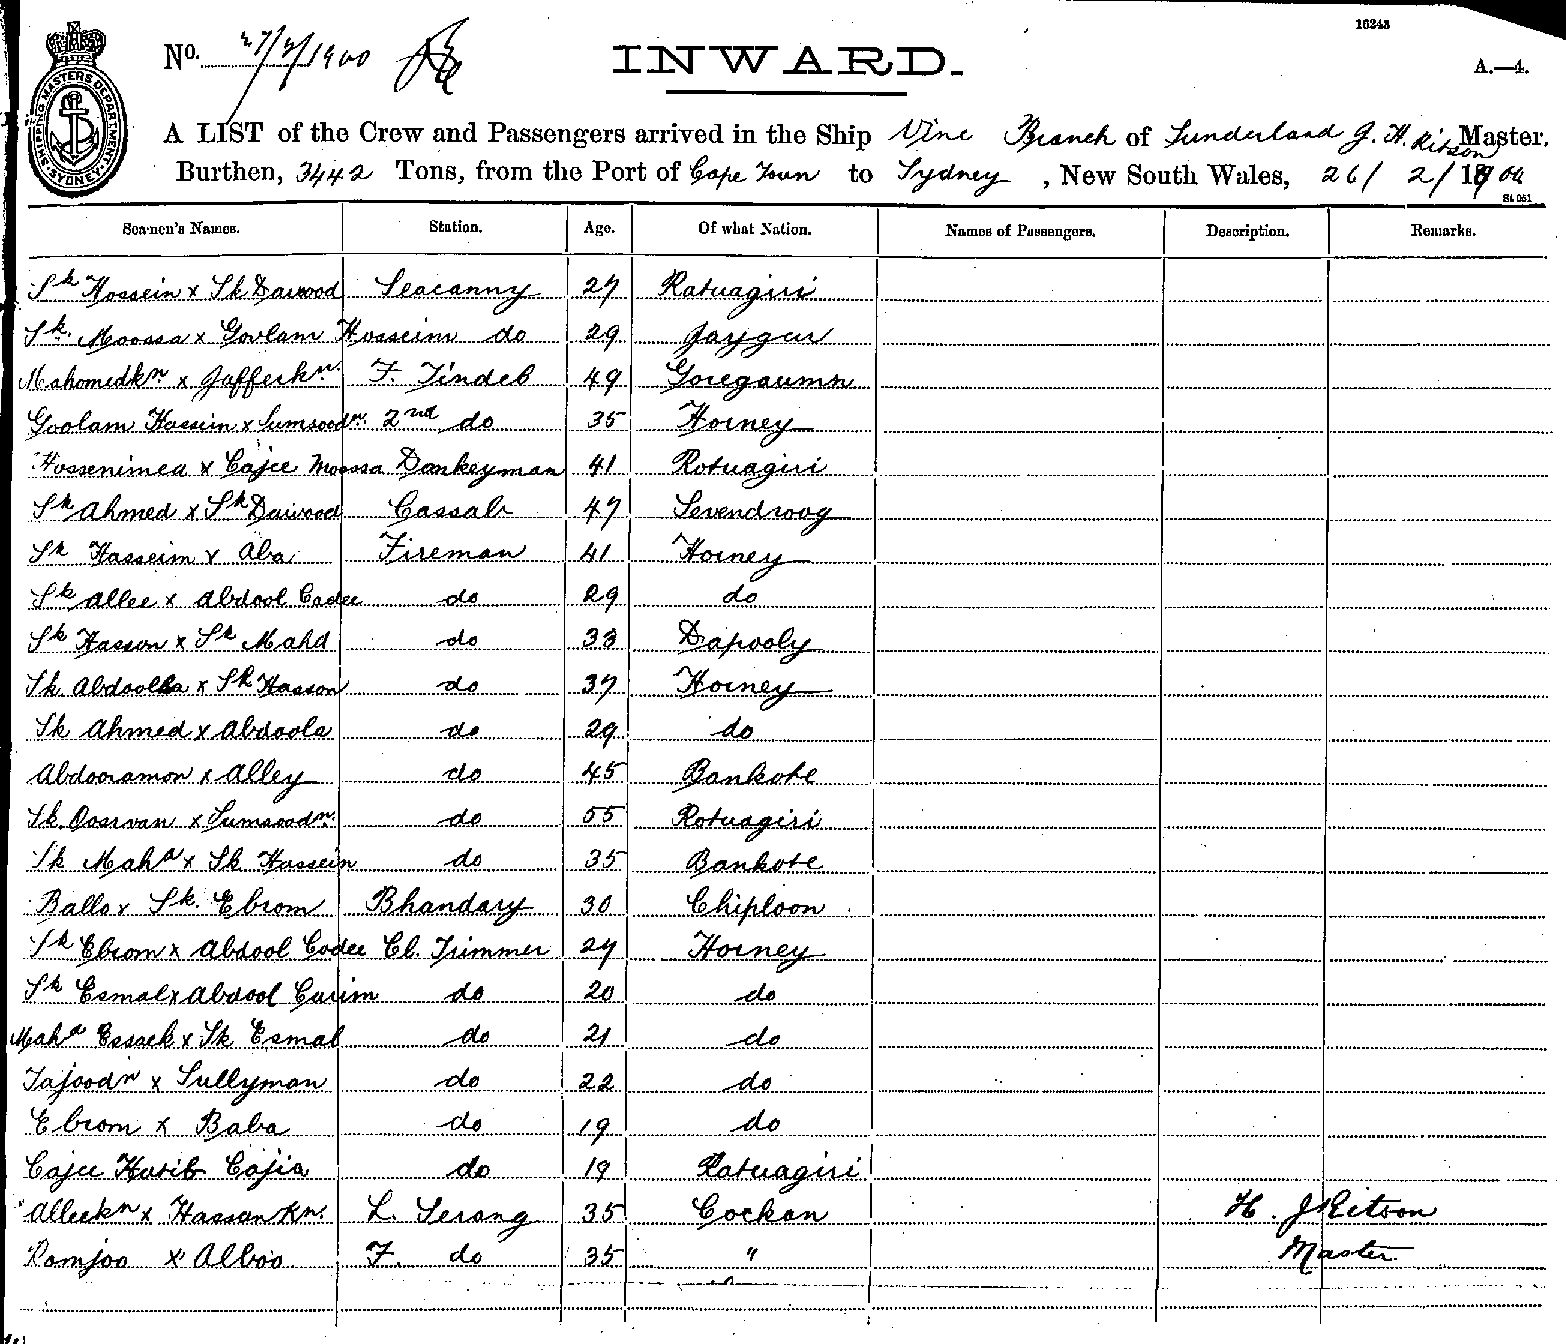 16243
No. 27/2/1900
INWARD.
A.—4.
SHIPPING MASTERS DEPARTMENT SYDNEY
A LIST of the Crew and Passengers arrived in the Ship Vine Branch of Sunderland J. H. Ritson Master.
Burthen, 3442 Tons, from the Port of Cape Town to Sydney, New South Wales, 26/2/1900
St 051
Seamen's Names. Station. Age. Of what Nation. Names of Passengers. Description. Remarks.
Sk Hossein x Sk Dawood Seacanny 27 Ratuagiri
Sk. Moossa x Govlam Hosseim do 29 Jaygur
Mahomedkn x Jafferkn. F. Tindeb 49 Goregaumn
Goolam Hassein x Sumsoodn. 2nd do 35 Horney
Hossenimea x Cajee Moossa Donkeyman 41 Rotuagiri
Sk Ahmed x Sk Dawood Cassab 47 Sevendroog
Sk Hasseim x Aba Fireman 41 Horney
Sk Allee x Abdool Cadee do 29 do
Sk Hasson x Sk Mahd do 33 Dapooly
Sk Abdoolla x Sk Hasson do 37 Horney
Sk Ahmed x Abdoola do 29 do
Abdooramon x Alley do 45 Bankote
Sk. Oosman x Sumsoodn. do 55 Rotuagiri
Sk Mahd x Sk Hassein do 35 Bankote
Balla x Sk. Ebrom Bhandary 30 Chiploon
Sk Ebrom x Abdool Codee Cl. Trimmer 27 Horney
Sk Esmal x Abdool Curim do 20 do
Mahd Essack x Sk Esmal do 21 do
Tajoodn x Sullyman do 22 do
Ebrom x Baba do 19 do
Cajee Hatib Cajia do 19 Ratuagiri
Alleekn x Hassankn. L. Serang 35 Cockan H. J Ritson
Romjoo x Alboo F. do 35 " Master